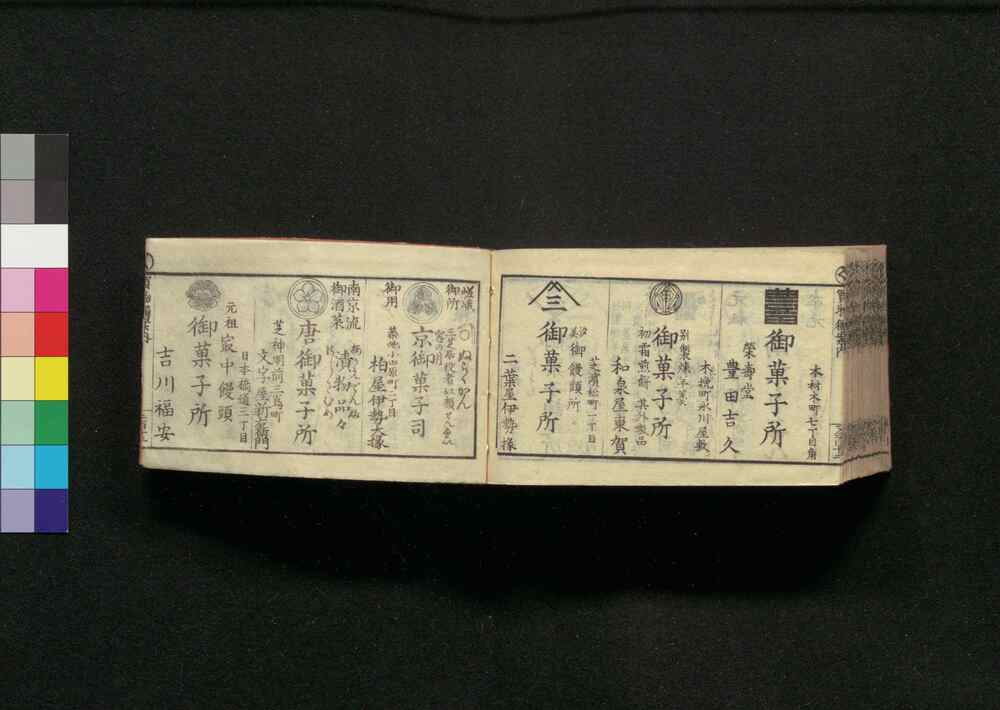 本材木町七丁目角
御菓子所
榮壽堂
豊田吉久
木挽町氷川屋敷
別製煉羊羹
御菓子所
初霜煎餅
其外数品
和泉屋東賀
芝濱松町一丁目
御饅頭所
三
御菓子所
二葉屋伊勢掾
嵯峨
御所
ぬらくかん
京御菓子司
御用
築地小田原町一丁目
柏屋伊勢大掾
南京流
御酒菜
漬物品々
唐御菓子所
芝神明前三嶌町
文字屋新右衛門
御菓子所
元祖
㝡中饅頭
日本橋通三丁目
吉川福安